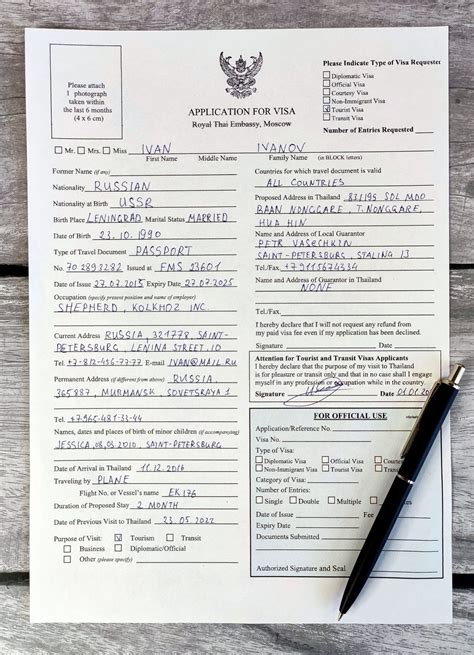 Please attach
1 photograph
taken within
the last 6 months
(4 x 6 cm)
APPLICATION FOR VISA
Royal Thai Embassy, Moscow
Please Indicate Type of Visa Requested
Diplomatic Visa
Official Visa
Courtesy Visa
Non-Immigrant Visa
Tourist Visa
Transit Visa
Number of Entries Requested
Mr. Mrs. Miss IVAN IVANOV
First Name Middle Name Family Name (in BLOCK letters)
Former Name (if any)
Nationality RUSSIAN
Nationality at Birth USSR
Birth Place LENINGRAD Marital Status MARRIED
Date of Birth 23.10.1990
Type of Travel Document PASSPORT
No. 70 2893282 Issued at FMS 23601
Date of Issue 27.07.2015 Expiry Date 27.07.2025
Occupation (specify present position and name of employer)
SHEPHERD, KOLKHOZ INC.
Current Address RUSSIA, 321778, SAINT-
PETERSBURG, LENINA STREET.10
Tel. +7-812-456-77-77 E-mail IVAN@MAIL.RU
Permanent Address (if different from above) RUSSIA,
365987, MURMANSK, SOVETSKAYA 1
Tel. +7-965-487-33-44
Names, dates and places of birth of minor children (if accompanying)
JESSICA, 08.03.2010, SAINT-PETERSBURG
Date of Arrival in Thailand 11.12.2016
Traveling by PLANE
Flight No. or Vessel's name EK 176
Duration of Proposed Stay 2 MONTH
Date of Previous Visit to Thailand 23.05.2022
Purpose of Visit: Tourism Transit
Business Diplomatic/Official
Other (please specify)
Countries for which travel document is valid
ALL COUNTRIES
Proposed Address in Thailand 83/195 SOL MOO
BAAN NONGGARE, T.NONGGARE,
HUA HIN
Name and Address of Local Guarantor
PETR VASECHKIN
SAINT-PETERSBURG, STALINA 13
Tel./Fax. +79115674334
Name and Address of Guarantor in Thailand
NONE
Tel./Fax.
I hereby declare that I will not request any refund from
my paid visa fee even if my application has been declined.
Signature Date
Attention for Tourist and Transit Visas Applicants
I hereby declare that the purpose of my visit to Thailand
is for pleasure or transit only and that in no case shall I engage
myself in any profession or occupation while in the country.
Signature Date
FOR OFFICIAL USE
Application/Reference No.
Visa No.
Type of Visa:
Diplomatic Visa Official Visa
Non-Immigrant Visa Tourist Visa
Category of Visa:
Number of Entries:
Single Double Multiple
Date of Issue
Expiry Date
Documents Submitted
Authorized Signature and Seal